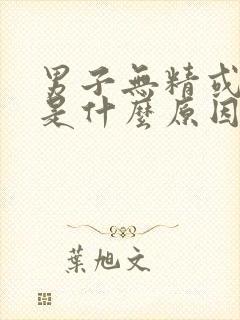 男子無精或
是什麼原因
葉旭文